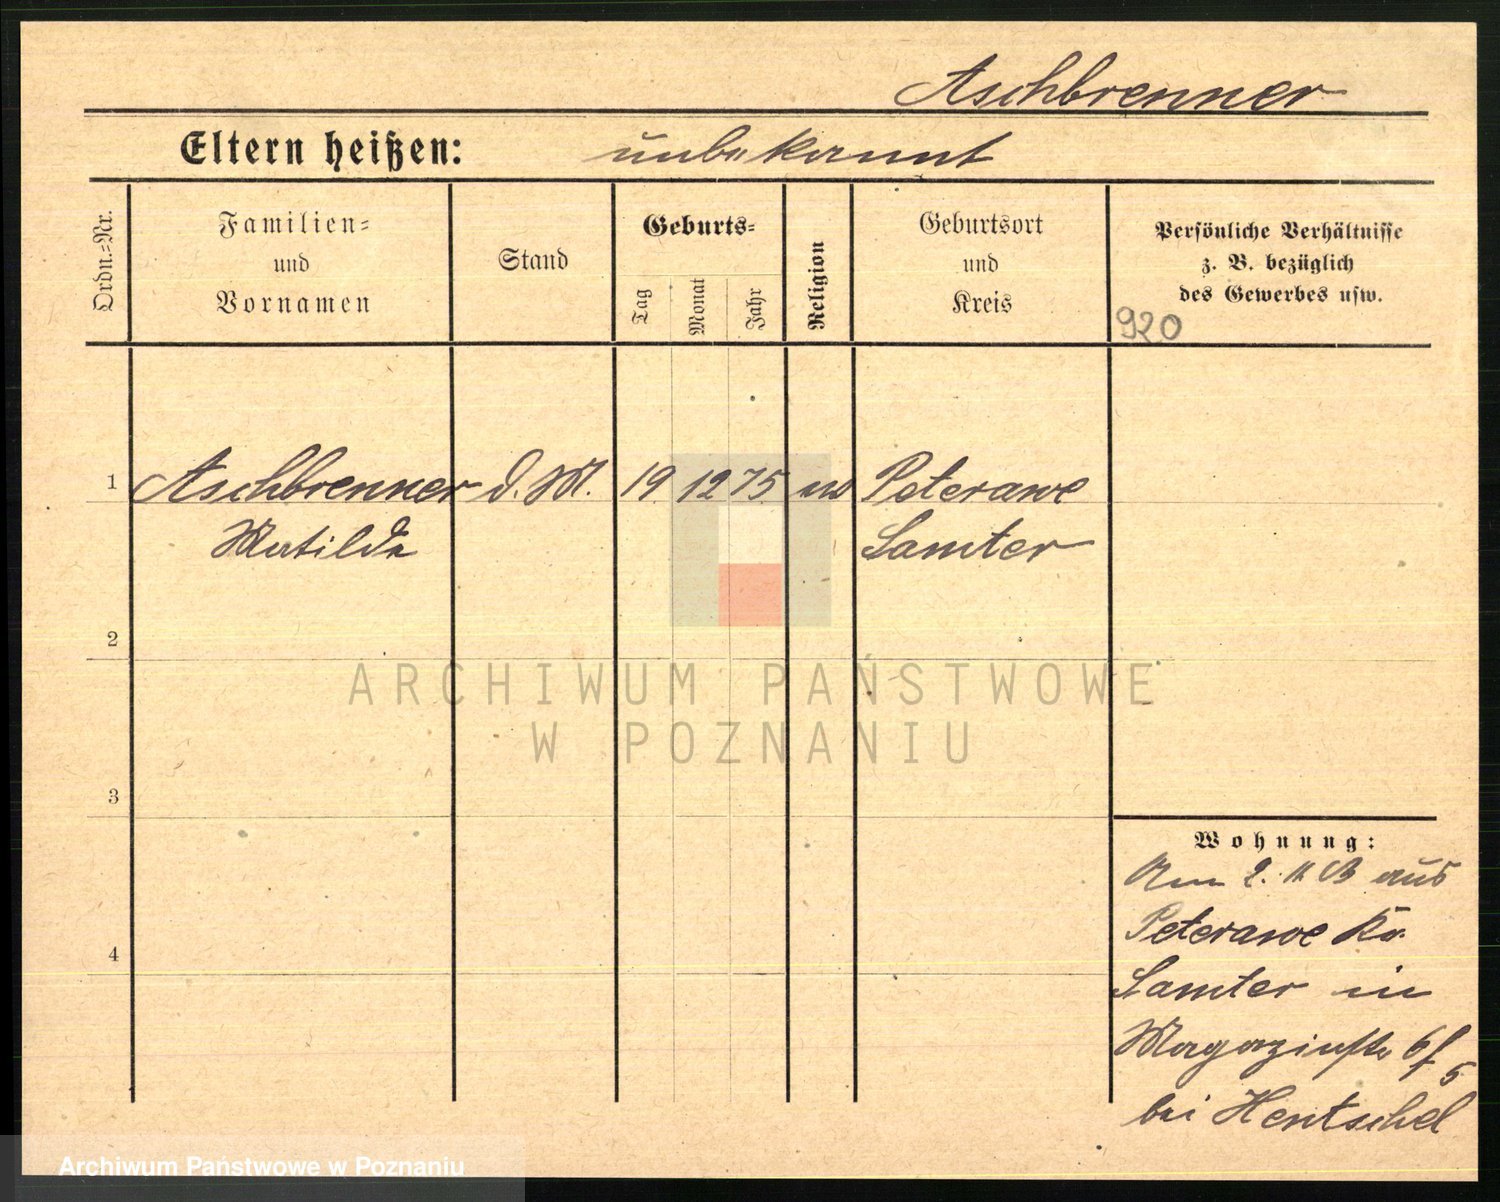 Aschbrenner
Eltern heißen: unbekannt
Ordn.=Nr.
Familien=
und
Vornamen
Stand
Geburts=
Tag
Monat
Jahr
Religion
Geburtsort
und
Kreis
Persönliche Verhältnisse
z. B. bezüglich
des Gewerbes usw.
920
1 Aschbrenner d. M. 19 12 75 Peterawe
Matilda Samter
2
ARCHIWUM PAŃSTWOWE
W POZNANIU
3
Wohnung:
Am 2. aus
4
Peterawe Kr.
Samter in
Magazinstr 6
bei Hentschel
Archiwum Państwowe w Poznaniu